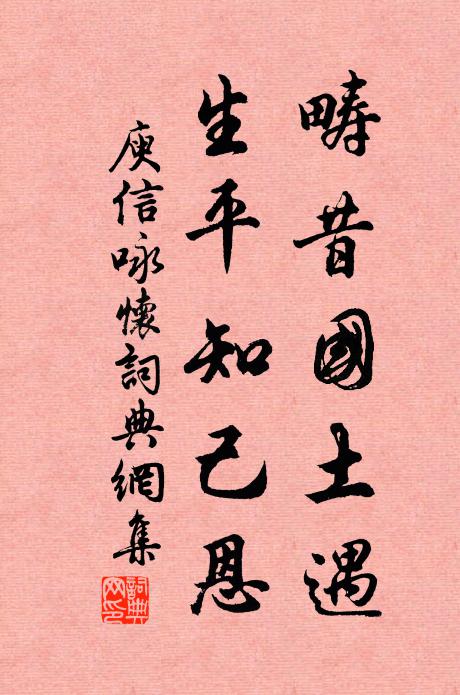 疇昔國土遇
生平知己恩
庾信咏懷詞典網集
詞典網印